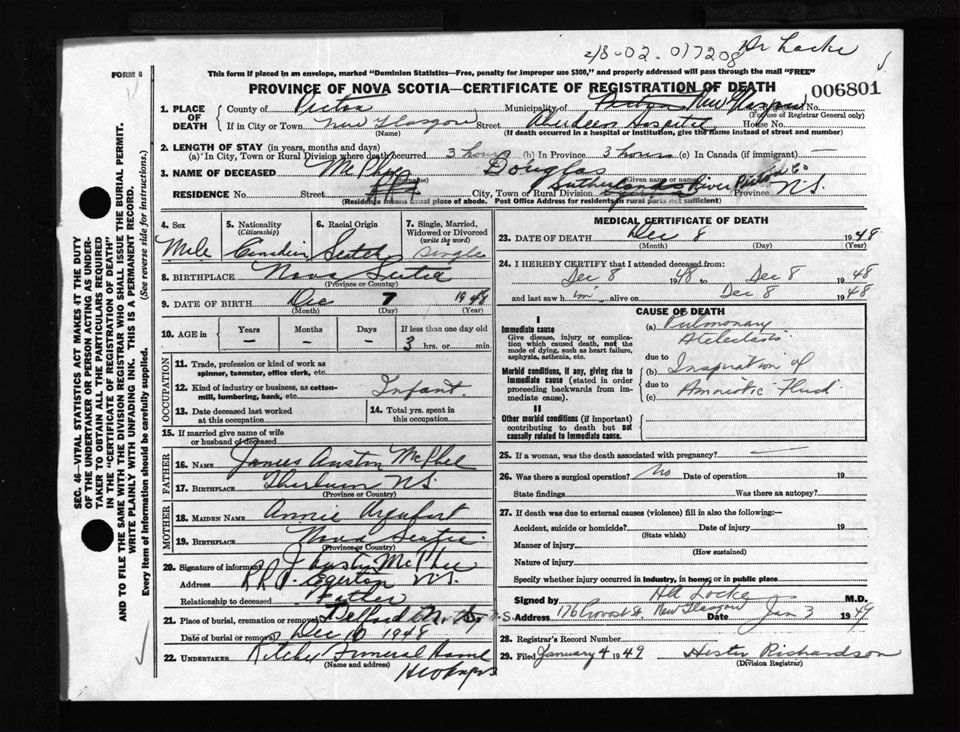 2/8-02. 017208 Dr Locke
FORM 6
This form if placed in an envelope, marked "Dominion Statistics—Free, penalty for improper use $300," and properly addressed will pass through the mail "FREE"
PROVINCE OF NOVA SCOTIA—CERTIFICATE OF REGISTRATION OF DEATH
006801
1. PLACE OF DEATH
County of Pictou Municipality of Pictou New Glasgow No.
(For use of Registrar General only)
If in City or Town New Glasgow Street Aberdeen Hospital House No.
(If death occurred in a hospital or institution, give the name instead of street and number)
2. LENGTH OF STAY (in years, months and days)
(a) In City, Town or Rural Division where death occurred 3 hours (b) In Province 3 hours (c) In Canada (if immigrant) —
3. NAME OF DECEASED McPhee Douglas
(Given name or names)
RESIDENCE No. Street City, Town or Rural Division Sutherlands River Pictou Co Province N.S.
(Residence means usual place of abode. Post Office Address for residents in rural parts not sufficient)
4. Sex
Male
5. Nationality (Citizenship)
Canadian
6. Racial Origin
Scotch
7. Single, Married, Widowed or Divorced (write the word)
Single
8. BIRTHPLACE Nova Scotia
(Province or Country)
9. DATE OF BIRTH Dec 7 1948
(Month) (Day) (Year)
10. AGE in
Years Months Days If less than one day old
— — — 3 hrs. or min.
OCCUPATION
11. Trade, profession or kind of work as spinner, teamster, office clerk, etc.
12. Kind of industry or business, as cotton-mill, lumbering, bank, etc.
Infant
13. Date deceased last worked at this occupation
14. Total yrs. spent in this occupation
15. If married give name of wife or husband of deceased
FATHER
16. NAME James Austin McPhee
17. BIRTHPLACE Thorburn N.S.
(Province or Country)
MOTHER
18. MAIDEN NAME Annie
19. BIRTHPLACE Nova Scotia
(Province or Country)
20. Signature of informant J Austin McPhee
Address R R 1 Egerton N.S.
Relationship to deceased Father
21. Place of burial, cremation or removal N.S.
Date of burial or removal Dec 10 1948
22. UNDERTAKER Funeral Home
(Name and address)
MEDICAL CERTIFICATE OF DEATH
23. DATE OF DEATH Dec 8 1948
(Month) (Day) (Year)
24. I HEREBY CERTIFY that I attended deceased from:
Dec 8 1948 to Dec 8 1948
and last saw h im alive on Dec 8 1948
CAUSE OF DEATH
I
Immediate cause
Give disease, injury or complication which caused death, not the mode of dying, such as heart failure, asphyxia, asthenia, etc.
Morbid conditions, if any, giving rise to immediate cause (stated in order proceeding backwards from immediate cause).
II
Other morbid conditions (if important) contributing to death but not causally related to immediate cause.
(a) Pulmonary Atelectasis
due to
(b) Inspiration of
due to
(c) Amniotic Fluid
25. If a woman, was the death associated with pregnancy?
26. Was there a surgical operation? No Date of operation 19
State findings Was there an autopsy?
27. If death was due to external causes (violence) fill in also the following:—
Accident, suicide or homicide? Date of injury 19
(State which)
Manner of injury
(How sustained)
Nature of injury
Specify whether injury occurred in industry, in home, or in public place
Signed by H A Locke M.D.
Address 176 Provost St. New Glasgow N.S. Date Jan 3 1949
28. Registrar's Record Number
29. Filed January 4 1949 Hester Richardson
(Division Registrar)
SEC. 46—VITAL STATISTICS ACT MAKES IT THE DUTY
OF THE UNDERTAKER OR PERSON ACTING AS UNDER-
TAKER TO OBTAIN ALL THE PARTICULARS REQUIRED
IN THE "CERTIFICATE OF REGISTRATION OF DEATH"
AND TO FILE THE SAME WITH THE DIVISION REGISTRAR WHO SHALL ISSUE THE BURIAL PERMIT.
WRITE PLAINLY WITH UNFADING INK. THIS IS A PERMANENT RECORD.
Every item of information should be carefully supplied. (See reverse side for instructions.)